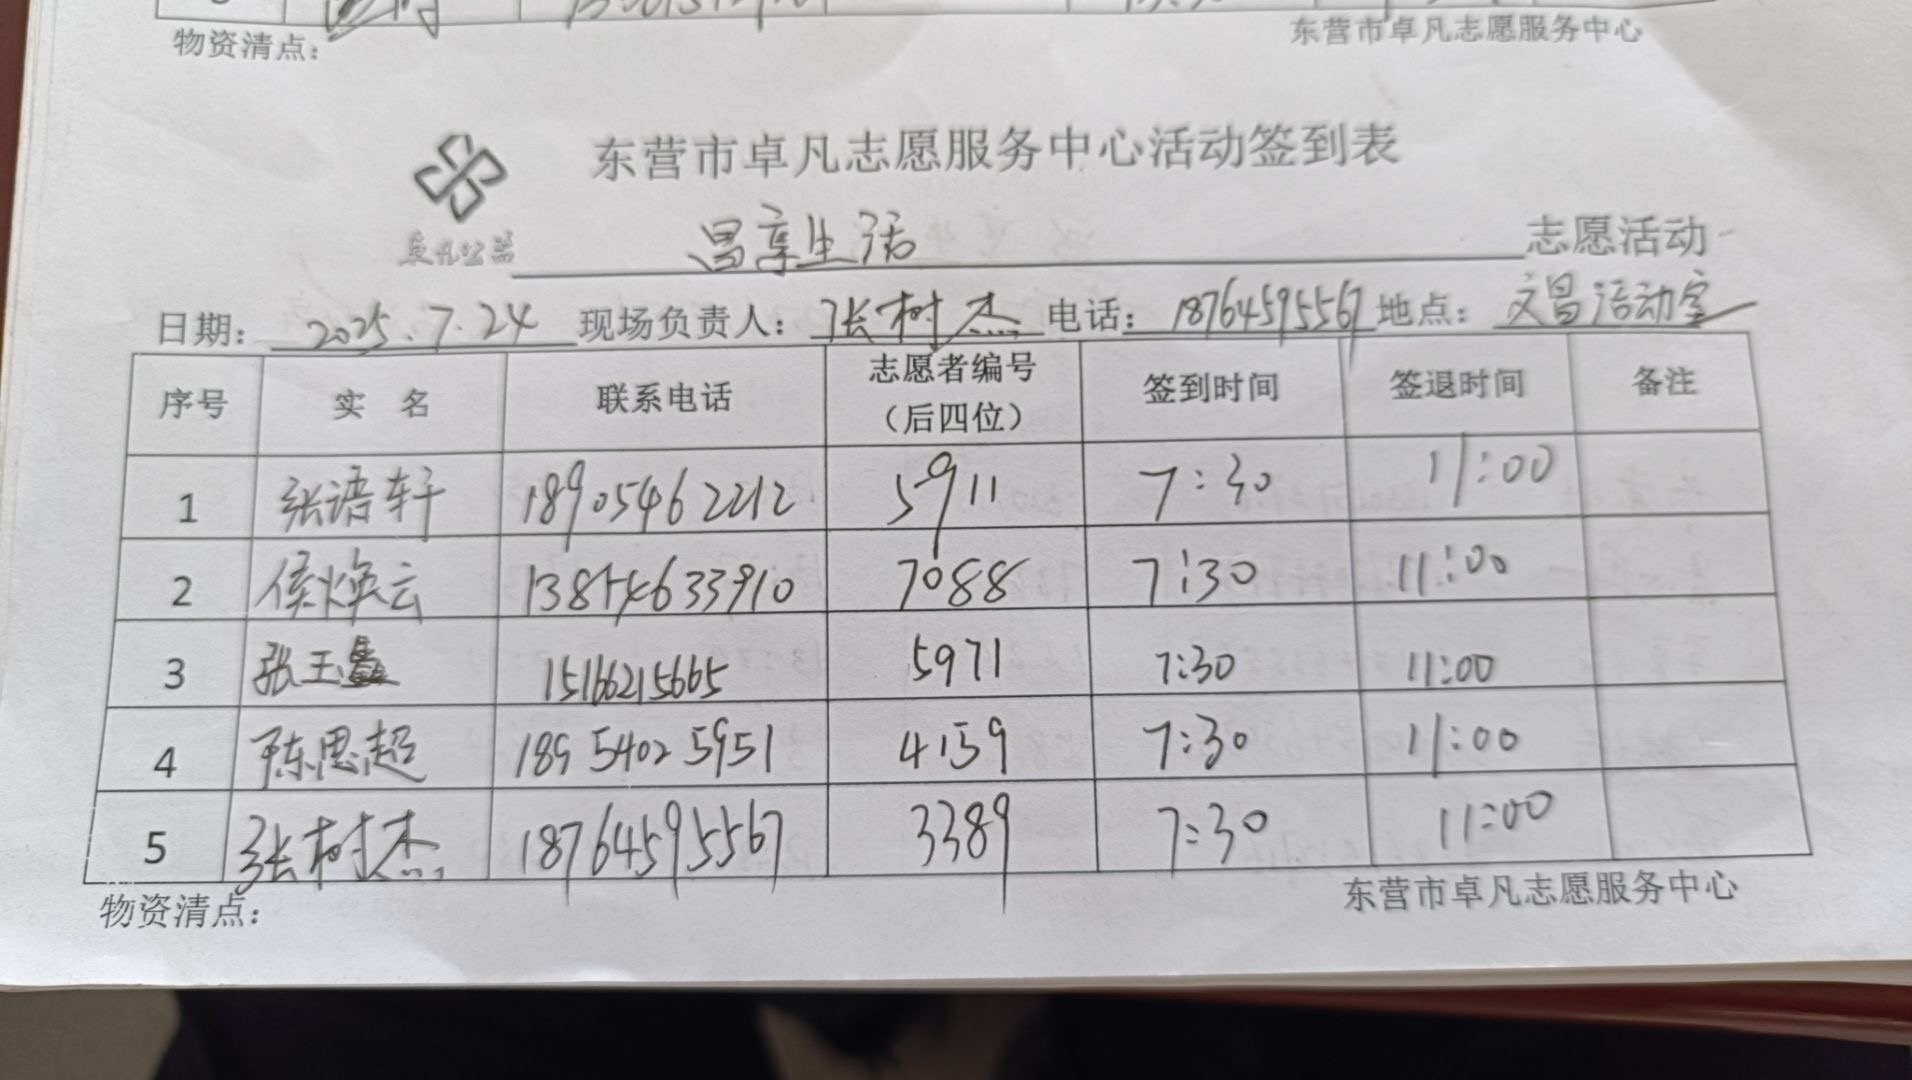 物资清点：
东营市卓凡志愿服务中心
东营市卓凡志愿服务中心活动签到表
卓凡公益
昌享生活 志愿活动
日期： 2025.7.24 现场负责人： 张树杰 电话： 18764595567 地点： 文昌活动室
序号 实 名 联系电话 志愿者编号（后四位） 签到时间 签退时间 备注
1 张语轩 18905462212 5911 7:30 11:00
2 侯焕云 13854633910 7088 7:30 11:00
3 张玉鑫 15166215665 5971 7:30 11:00
4 陈思超 18954025951 4159 7:30 11:00
5 张树杰 18764595567 3389 7:30 11:00
物资清点：
东营市卓凡志愿服务中心